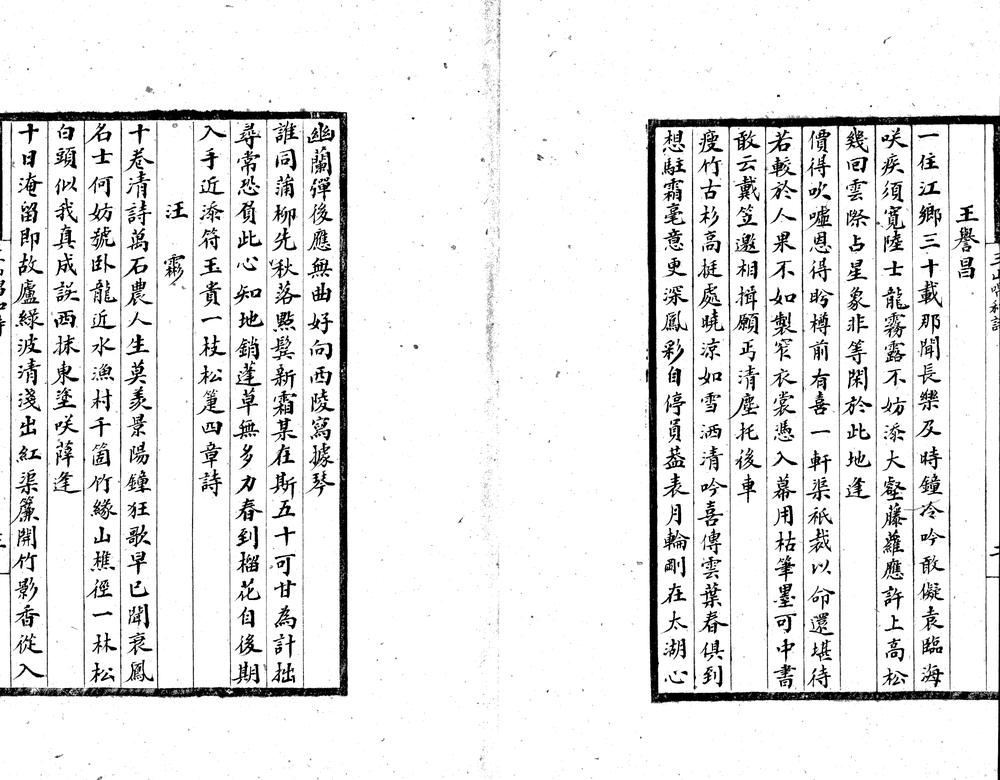 王譽昌
一住江鄉三十載那聞長樂及時鐘冷吟敢儗袁臨海
咲疾須寛陸士龍霧露不妨添大壑藤蘿應許上高松
幾回雲際占星象非等閑於此地逢
價得吹噓恩得盼樽前有喜一軒渠祇裁以命還堪待
若較於人果不如製窄衣裳憑入幕用枯筆墨可中書
敢云戴笠邀相揖願丐清塵托後車
瘦竹古杉高挺處曉涼如雪洒清吟喜傳雲葉春俱到
想駐霜毫意更深鳳彩自停員葢表月輪剛在太湖心
幽蘭彈後應無曲好向西陵寫據琴
誰同蒲柳先秋落㸃鬓新霜某在斯五十可甘為計拙
尋常恐負此心知地銷蓬草無多力春到榴花自後期
入手近添符玉貴一枝松篷四章詩
汪霦
十卷清詩萬石農人生莫羨景陽鐘狂歌早已聞衰鳳
名士何妨號卧龍近水漁村千箇竹緣山樵徑一林松
白頭似我真成誤西抹東塗咲薛逢
十日淹留即故廬綠波清淺出紅渠簾開竹影香從入